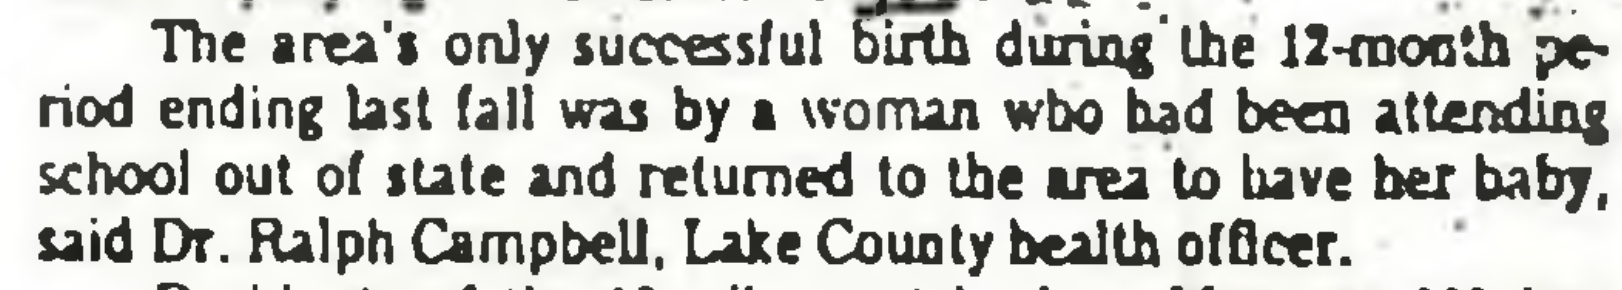 The area's only successful birth during the 12-month pe-
riod ending last fall was by a woman who had been attending
school out of state and returned to the area to have her baby,
said Dr. Ralph Campbell, Lake County health officer.